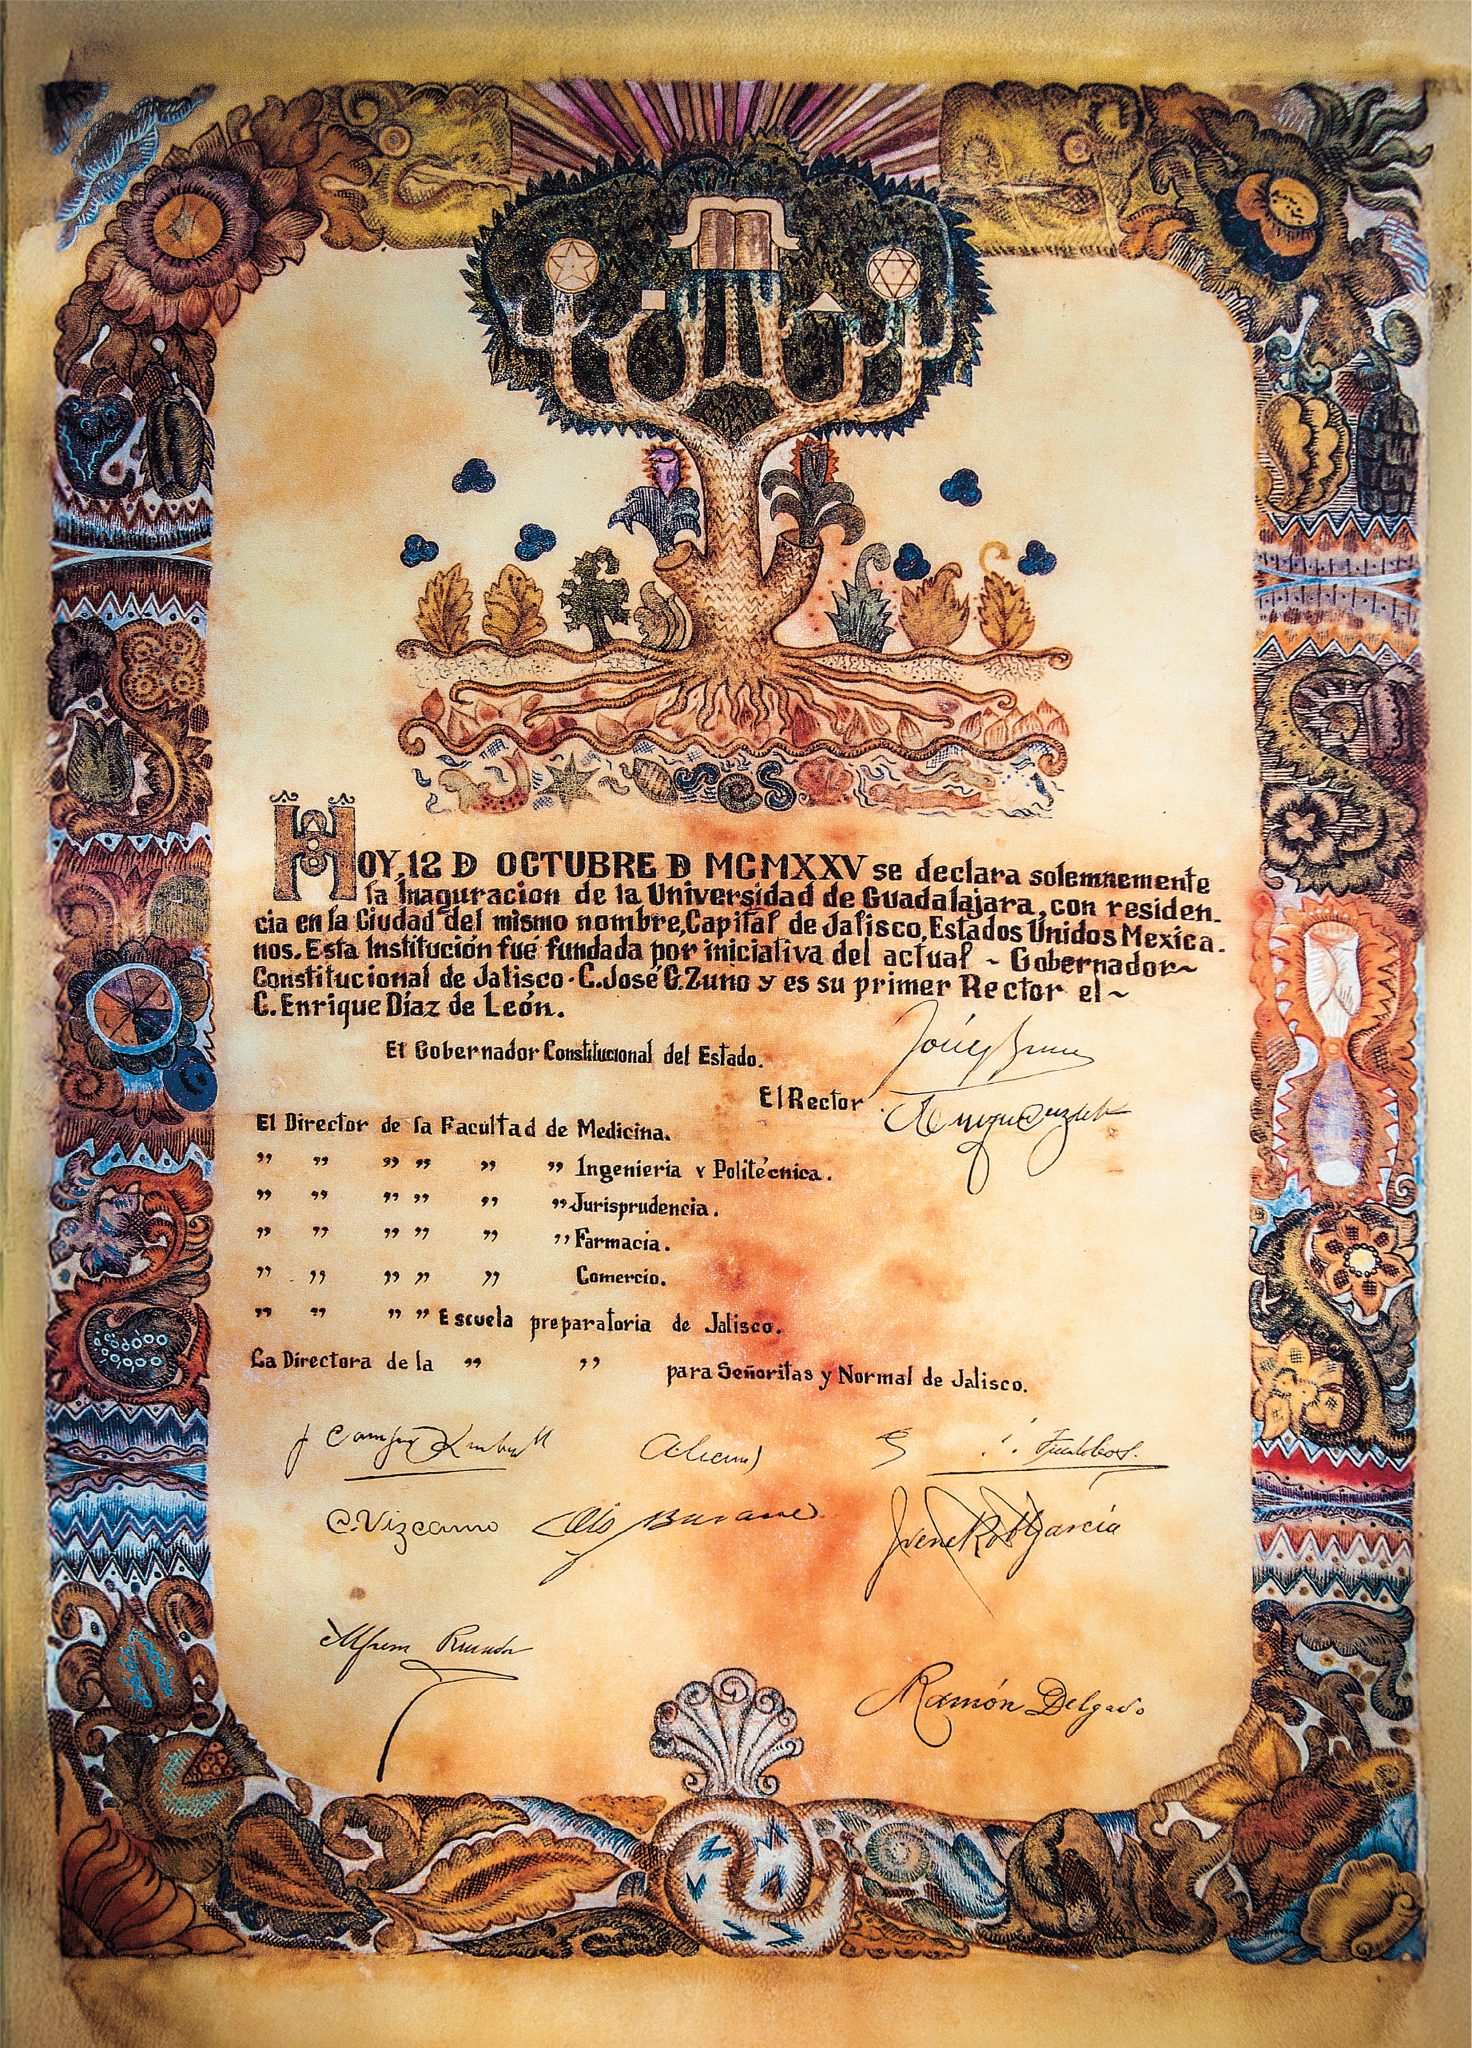 HOY, 12 D OCTUBRE D MCMXXV se declara solemnemente
la Inaguracion de la Universidad de Guadalajara, con residen-
cia en la Ciudad del mismo nombre, Capital de Jalisco, Estados Unidos Mexica-
nos. Esta Institución fué fundada por iniciativa del actual ~ Gobernador~
Constitucional de Jalisco · C. José G. Zuno y es su primer Rector el ~
C. Enrique Díaz de León.
El Gobernador Constitucional del Estado.
El Rector
El Director de la Facultad de Medicina.
" " " " " " Ingenieria y Politécnica.
" " " " " " Jurisprudencia.
" " " " " " Farmacia.
" " " " " Comercio.
" " " " Escuela preparatoria de Jalisco.
La Directora de la " " para Señoritas y Normal de Jalisco.
C. Vizcarra
Irene Robl García
Ramón Delgado